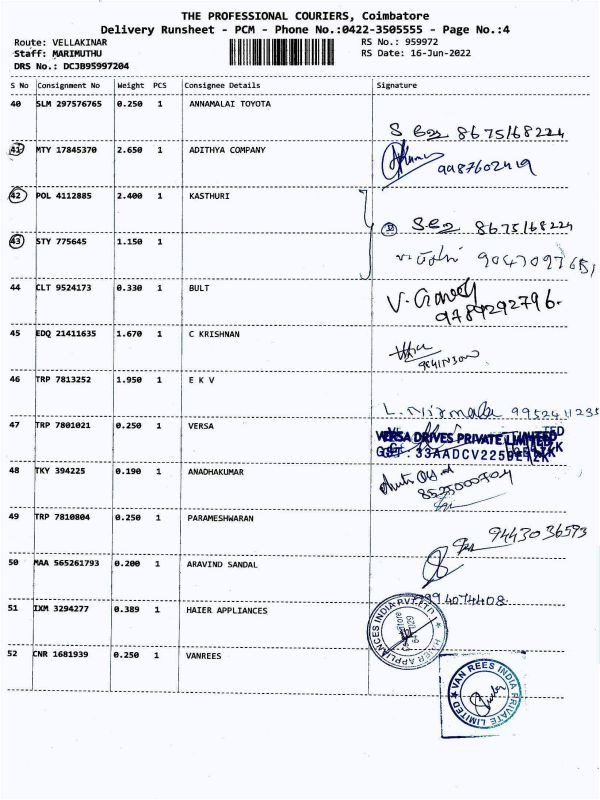 THE PROFESSIONAL COURIERS, Coimbatore
Delivery Runsheet - PCM - Phone No.:0422-3505555 - Page No.:4
Route: VELLAKINAR RS No.: 959972
Staff: MARIMUTHU RS Date: 16-Jun-2022
DRS No.: DCJB95997204
S No Consignment No Weight PCS Consignee Details Signature
40 SLM 297576765 0.250 1 ANNAMALAI TOYOTA
8675168224
41 MTY 17845370 2.650 1 ADITHYA COMPANY
9987602419
42 POL 4112885 2.400 1 KASTHURI
8675168224
43 STY 775645 1.150 1
44 CLT 9524173 0.330 1 BULT
9789292796.
45 EDQ 21411635 1.670 1 C KRISHNAN
46 TRP 7813252 1.950 1 E K V
L. Nirmala
47 TRP 7801021 0.250 1 VERSA
VERSA DRIVES PRIVATE LIMITED
48 TKY 394225 0.190 1 ANADHAKUMAR
8525000704
49 TRP 7810804 0.250 1 PARAMESHWARAN
9443036593
50 MAA 565261793 0.200 1 ARAVIND SANDAL
9994074408.
51 IXM 3294277 0.389 1 HAIER APPLIANCES
HAIER APPLIANCES INDIA PVT. LTD.
52 CNR 1681939 0.250 1 VANREES
VAN REES INDIA PRIVATE LIMITED